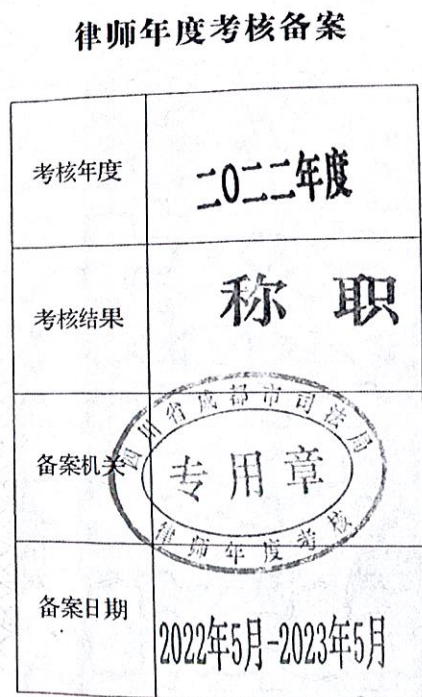 律师年度考核备案
考核年度
二0二二年度
考核结果
称职
备案机关
四川省成都市司法局
专用章
律师年度考核
备案日期
2022年5月-2023年5月